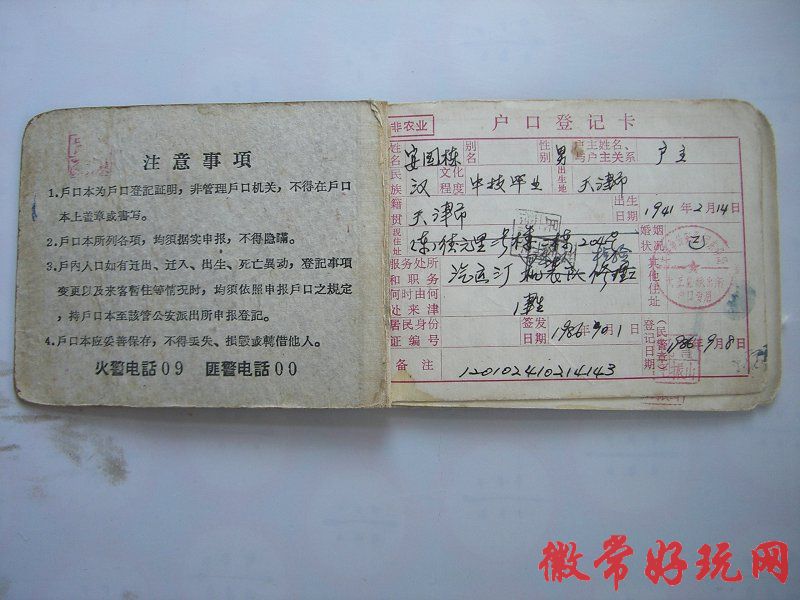 注意事項
1.戶口本为戶口登記証明，非管理戶口机关，不得在戶口
本上盖章或書写。
2.戶口本所列各項，均須据实申报，不得隐瞞。
3.戶內人口如有迁出、迁入、出生、死亡異动，登記事項
变更以及来客暫住等情况时，均須依照申报戶口之規定
，持戶口本至該管公安派出所申报登記。
4.戶口本应妥善保存，不得丢失、损毁或轉借他人。
火警电話09 匪警电話00
非农业
户口登记卡
姓名 国栋 别名 性别 男 户主姓名、与户主关系 户主
民族 汉 文化程度 中技毕业 出生地 天津市
籍贯 天津市 出生日期 1941年2月14日
现住址 婚姻状况 已
服务处所和职务 其他住址
何时由何处来津
居民身份证编号 签发日期 1986年9月1日 登记日期 (民警章) 1986年9月8日
备注 120102410214143
徽常好玩网